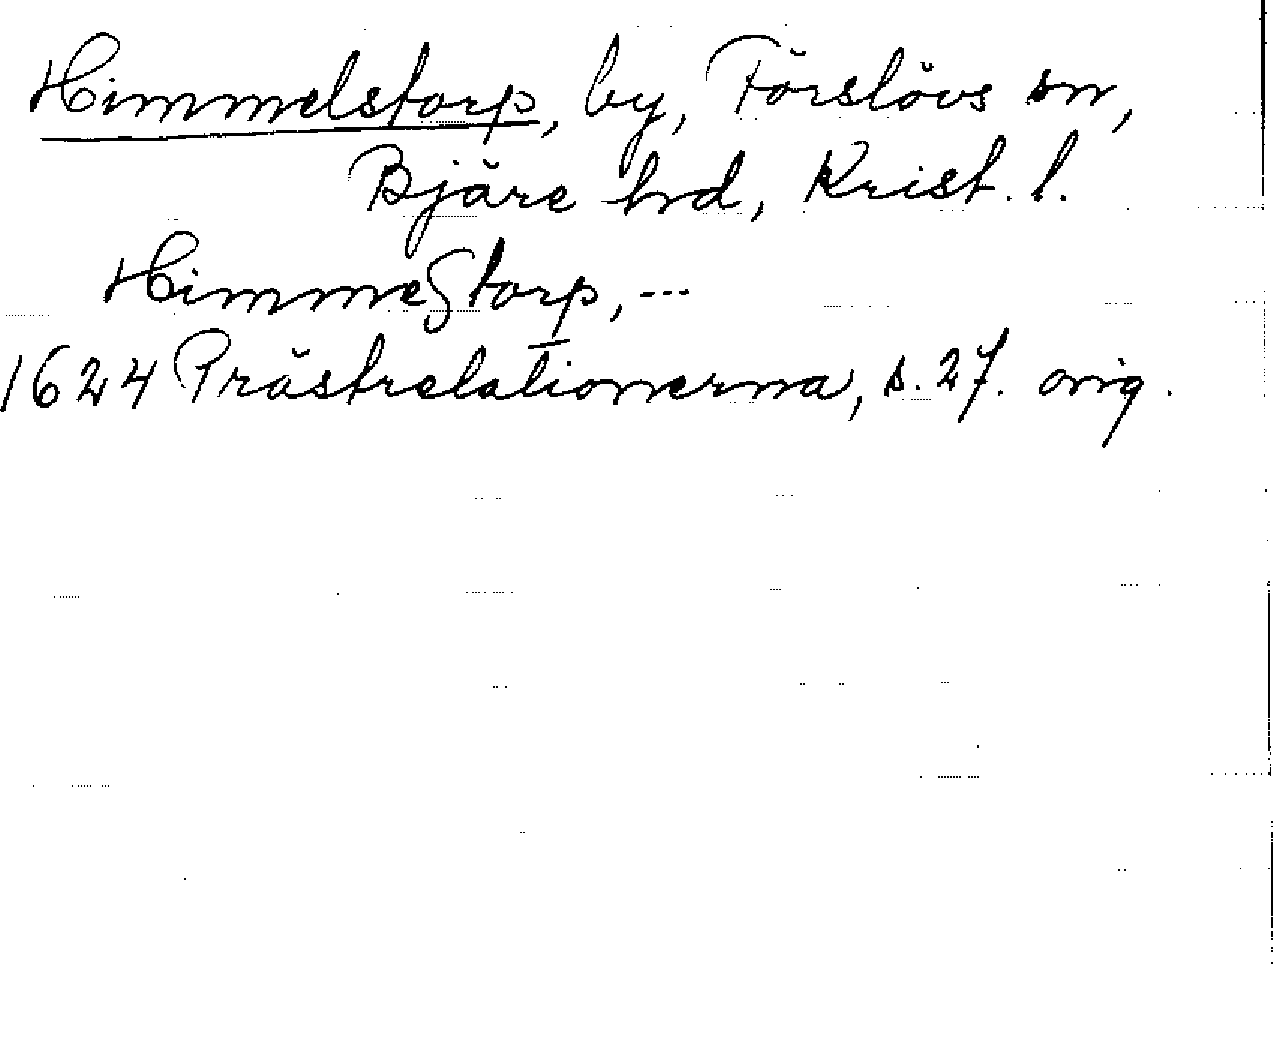 Himmelstorp, by, Förslövs sn,
Bjäre hrd, Krist. l.
Himmestorp, ---
1624 Prästrelationerna, s. 27. orig.